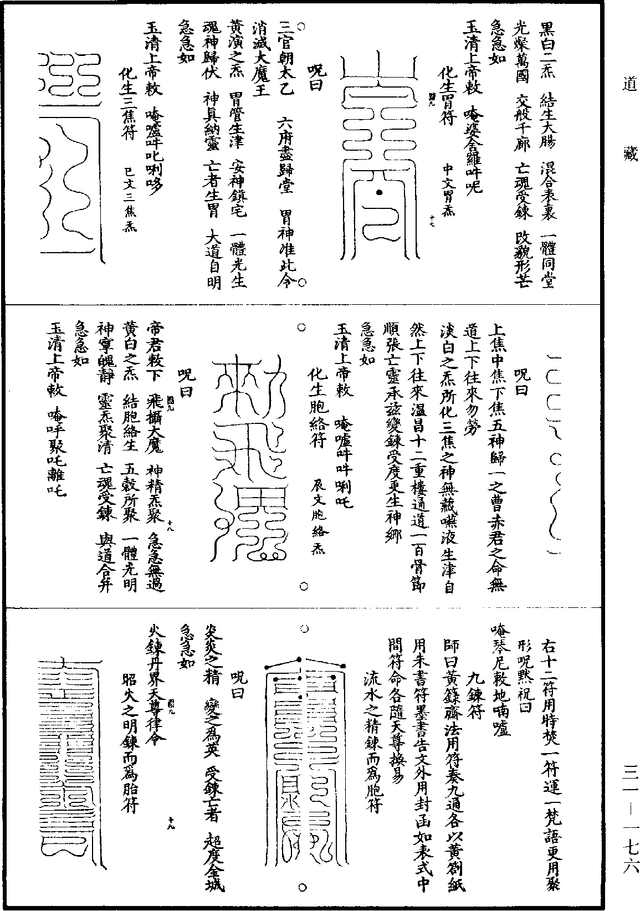 道藏
黑白二炁　結生大腸　混合表裏　一體同堂
光粲萬國　交般千廊　亡魂受鍊　改貌形芒
急急如
玉清上帝敕　唵婆舍羅吽呢
化生胃符　中文胃炁
呪曰
三官朝太乙　六府盡歸堂　胃神准此令
消滅大魔王
黃演之炁　胃管生津　安神鎮宅　一體光生
魂神歸伏　神真納靈　亡者生胃　大道自明
急急如
玉清上帝敕　唵嚧吽叱唎哆
化生三焦符　巳文三焦炁
呪曰
上焦中焦下焦五神歸一之曹赤君之命無
道上下往來勿勞
淡白之炁所化三焦之神無藏嚥液生津自
然上下往來溫昌十二重樓通道一百骨節
順張亡靈承兹變鍊受度更生神鄉
急急如
玉清上帝敕　唵嚧吽吽唎吒
化生胞絡符　辰文胞絡炁
呪曰
帝君敕下　飛攝大魔　神精炁眾　急急無過
黃白之炁　結胞絡生　五穀所聚　一體光明
神寧魄靜　靈炁聚清　亡魂受鍊　與道合并
急急如
玉清上帝敕　唵呼聚吒離吒
右十二符用特焚一符運一梵語更用聚
形呪黙祝曰
唵琴尼敕地喃嚧
九鍊符
師曰黃籙齋法用符奏九通各以黃劄紙
用朱書符墨書告文外用封函如表式中
間符命各隨天尊換易
流水之精鍊而爲胞符
呪曰
炎炎之精　變之爲英　受鍊亡者　超度金城
急急如
火鍊丹界天尊律令
昭火之明鍊而爲胎符
三一—一七六